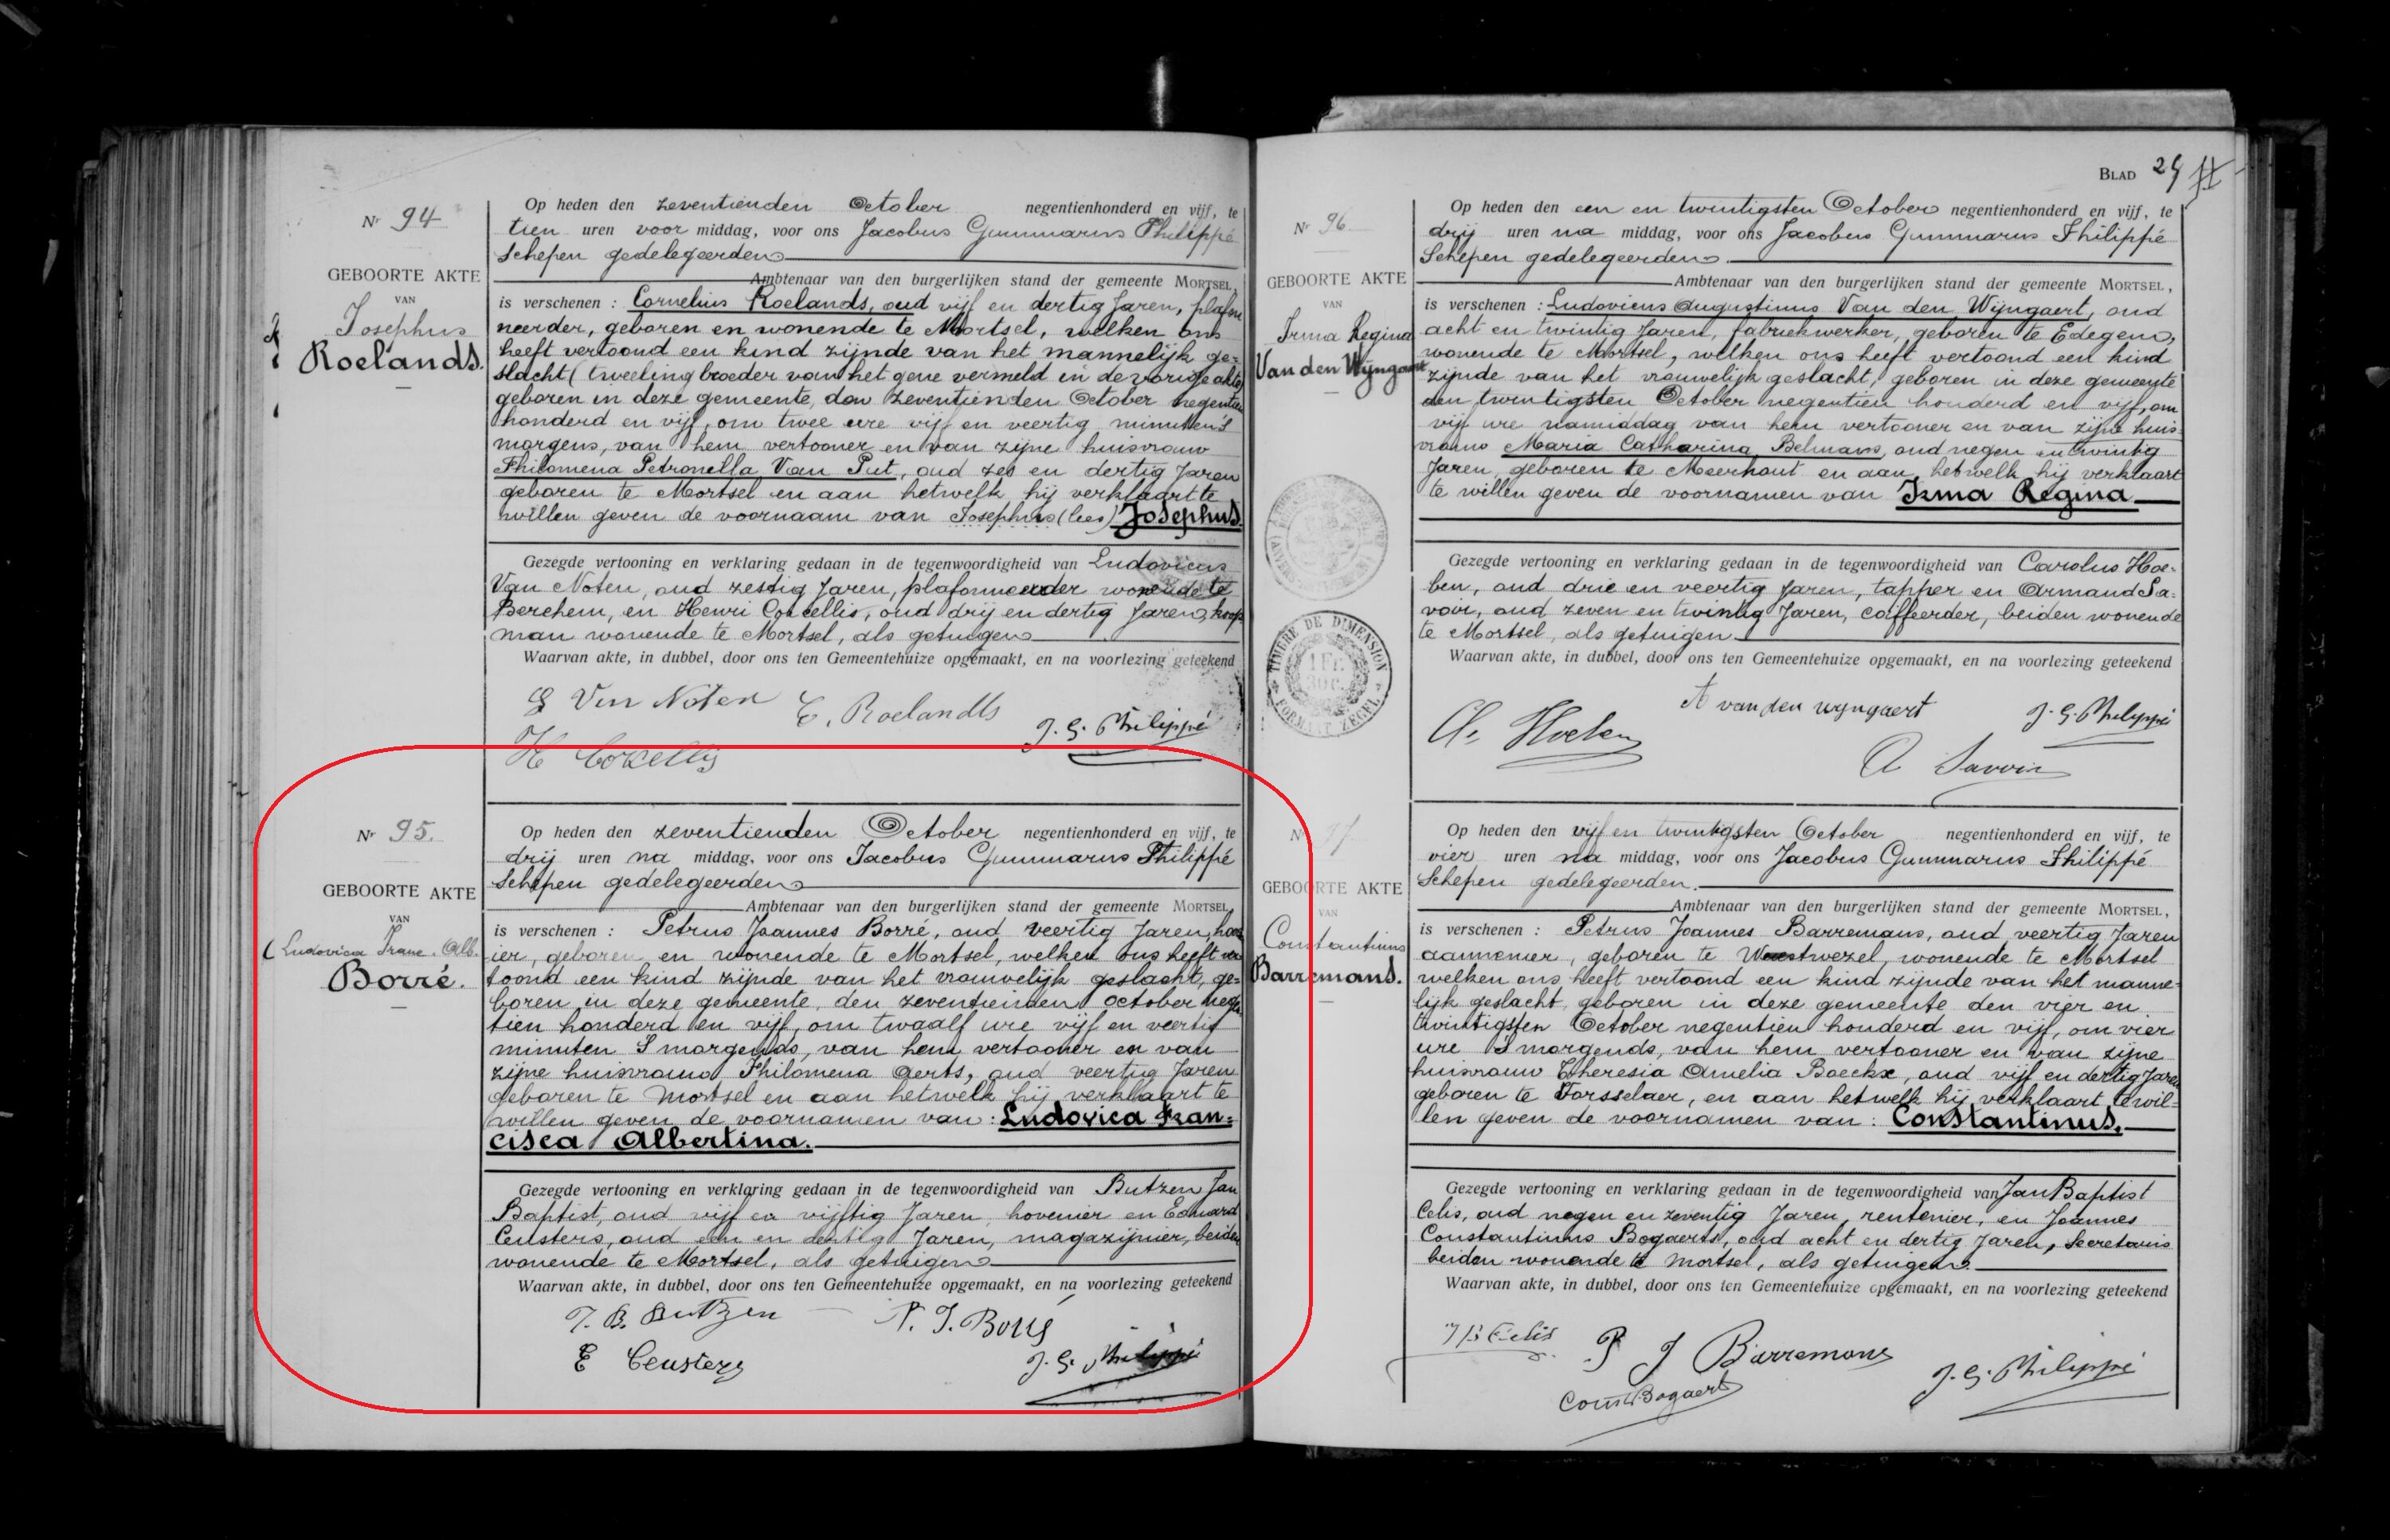 Nr 94
GEBOORTE AKTE
VAN
Josephus
Roelands.
Op heden den zeventienden October negentienhonderd en vijf, te
tien uren voor middag, voor ons Jacobus Gummarus Philippé
Schepen gedelegeerden
Ambtenaar van den burgerlijken stand der gemeente MORTSEL,
is verschenen : Cornelius Roelands, oud vijf en dertig Jaren, plafon
neerder, geboren en wonende te Mortsel, welken ons
heeft vertoond een kind zijnde van het mannelijk ge=
slacht (tweelingbroeder van het gene vermeld in de vorige akte)
geboren in deze gemeente, den zeventienden October negentien
honderd en vijf, om twee ure vijf en veertig minuten 's
morgens, van hem vertooner en van zijne huisvrouw
Philomena Petronella Van Put, oud zes en dertig Jaren
geboren te Mortsel en aan hetwelk hij verklaart te
willen geven de voornaam van Josephus (lees) Josephus.
Gezegde vertooning en verklaring gedaan in de tegenwoordigheid van Ludovicus
Van Noten, oud zestig Jaren, plafonneerder wonende te
Berchem, en Henri Coxellis, oud drij en dertig Jaren, koop
man wonende te Mortsel, als getuigen
Waarvan akte, in dubbel, door ons ten Gemeentehuize opgemaakt, en na voorlezing geteekend
L Van Noten C. Roelandts
J. G. Philippé
H Coxellis
Nr 95.
GEBOORTE AKTE
VAN
(Ludovica Franc. Alb.
Borré.
Op heden den zeventienden October negentienhonderd en vijf, te
drij uren na middag, voor ons Jacobus Gummarus Philippé
Schepen gedelegeerden
Ambtenaar van den burgerlijken stand der gemeente MORTSEL,
is verschenen : Petrus Joannes Borré, oud veertig Jaren, hove
ier, geboren en wonende te Mortsel, welken ons heeft ver
toond een kind zijnde van het vrouwelijk geslacht, ge=
boren in deze gemeente, den zeventienden October negen
tien honderd en vijf, om twaalf ure vijf en veertig
minuten 's morgends, van hem vertooner en van
zijne huisvrouw Philomena Aerts, oud veertig Jaren
geboren te Mortsel en aan hetwelk hij verklaart te
willen geven de voornamen van : Ludovica Fran=
cisca Albertina.
Gezegde vertooning en verklaring gedaan in de tegenwoordigheid van Butzen Jan
Baptist, oud vijf en vijftig Jaren, hovenier en Eduard
Ceusters, oud een en dertig Jaren, magazijnier, beiden
wonende te Mortsel, als getuigen
Waarvan akte, in dubbel, door ons ten Gemeentehuize opgemaakt, en na voorlezing geteekend
J. B. Butzen P. J. Borré
E Ceusters J. G. Philippé
BLAD 29
Nr 96
GEBOORTE AKTE
VAN
Irma Regina
Van den Wijngaert
Op heden den een en twintigsten October negentienhonderd en vijf, te
drij uren na middag, voor ons Jacobus Gummarus Philippé
Schepen gedelegeerden.
Ambtenaar van den burgerlijken stand der gemeente MORTSEL,
is verschenen : Ludovicus Augustinus Van den Wijngaert, oud
acht en twintig Jaren, fabriekwerker, geboren te Edegem,
wonende te Mortsel, welken ons heeft vertoond een kind
zijnde van het vrouwelijk geslacht, geboren in deze gemeente
den twintigsten October negentien honderd en vijf, om
vijf ure namiddag van hem vertooner en van zijne huis=
vrouw Maria Catharina Belmans, oud negen en twintig
Jaren, geboren te Meerhout en aan hetwelk hij verklaart
te willen geven de voornamen van Irma Regina
Gezegde vertooning en verklaring gedaan in de tegenwoordigheid van Carolus Hoe=
ben, oud drie en veertig Jaren, tapper en Armand Sa=
voir, oud zeven en twintig Jaren, coiffeerder, beiden wonende
te Mortsel, als getuigen
Waarvan akte, in dubbel, door ons ten Gemeentehuize opgemaakt, en na voorlezing geteekend
TIMBRE DE DIMENSION
1 Fr.
30 C.
FORMAAT ZEGEL
A van den wyngaert J. G. Philippé
C. Hoeben
A Savoir
Nr 97
GEBOORTE AKTE
VAN
Constantinus
Barremans.
Op heden den vijf en twintigsten October negentienhonderd en vijf, te
vier uren na middag, voor ons Jacobus Gummarus Philippé
Schepen gedelegeerden.
Ambtenaar van den burgerlijken stand der gemeente MORTSEL,
is verschenen : Petrus Joannes Barremans, oud veertig Jaren
aannemer, geboren te Wuestwezel, wonende te Mortsel
welken ons heeft vertoond een kind zijnde van het manne=
lijk geslacht, geboren in deze gemeente den vier en
twintigsten October negentien honderd en vijf, om vier
ure 's morgends, van hem vertooner en van zijne
huisvrouw Theresia Amelia Boeckx, oud vijf en dertig Jaren
geboren te Vorsselaer, en aan hetwelk hij verklaart te wil=
len geven de voornamen van : Constantinus.
Gezegde vertooning en verklaring gedaan in de tegenwoordigheid van Jan Baptist
Celis, oud negen en zeventig Jaren, rentenier, en Joannes
Constantinus Bogaerts, oud acht en dertig Jaren, Secretaris
beiden wonende te Mortsel, als getuigen.
Waarvan akte, in dubbel, door ons ten Gemeentehuize opgemaakt, en na voorlezing geteekend
J B Celis P J Barremans
J. G. Philippé
Const Bogaerts